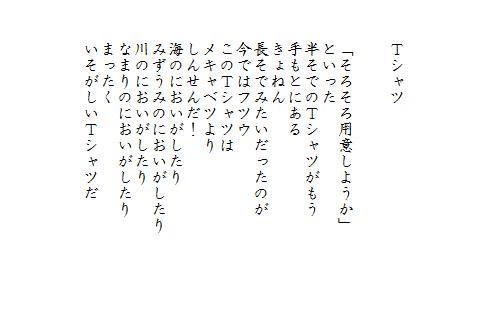 Tシャツ
「そろそろ用意しようか」
といった
半そでのTシャツがもう
手もとにある
きょねん
長そでみたいだったのが
今ではフツウ
このTシャツは
メキャベツより
しんせんだ！
海のにおいがしたり
みずうみのにおいがしたり
川のにおいがしたり
なまりのにおいがしたり
まったく
いそがしいTシャツだ